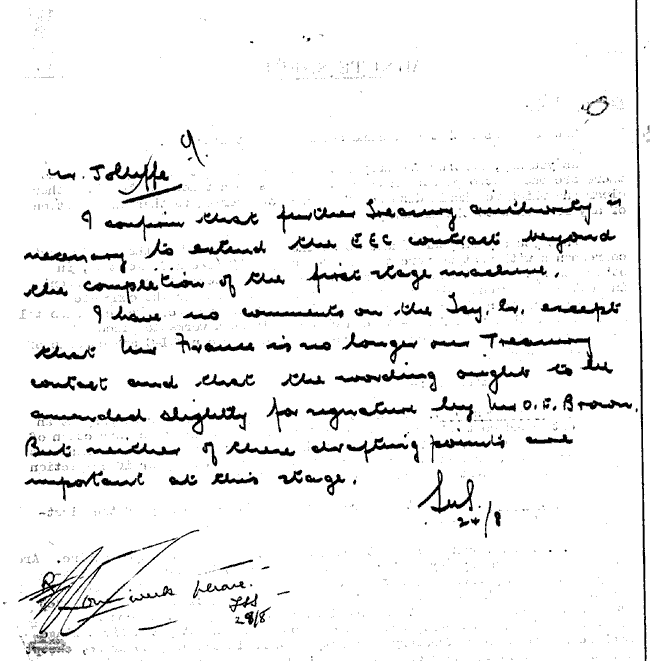 9/
Mr. Jolliffe
I confirm that further Treasury authority is
necessary to extend the EEC contract beyond
the completion of the first stage machine.
I have no comments on the Tsy. Lr. except
that Mr France is no longer our Treasury
contact and that the wording ought to be
amended slightly for signature by Mr D.E. Brown.
But neither of these drafting points are
important at this stage.
24/8
one week please.
28/8